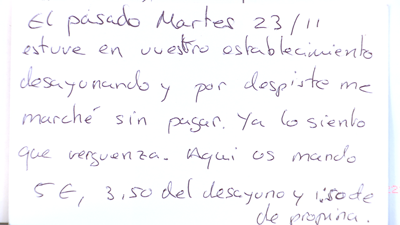 El pasado Martes 23/11
estuve en vuestro establecimiento
desayunando y por despiste me
marché sin pagar. Ya lo siento
que verguenza. Aqui os mando
5 €, 3,50 del desayuno y 1.50 de
de propina.